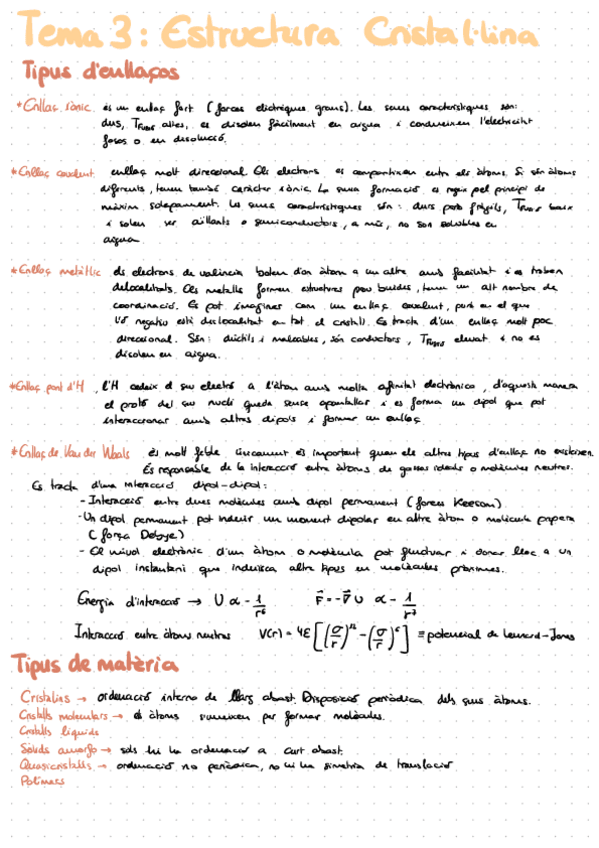 Tema 3: Estructura Cristal·lina
Tipus d'enllaços
* Enllaç iònic és un enllaç fort (forces elèctriques grans). Les seues característiques són:
durs, Tfusió altes, es disolen fàcilment en aigua i condueixen l'electricitat
fosos o en dissolució.
* Enllaç covalent enllaç molt direccional. Els electrons es comparteixen entre els àtoms. Si són àtoms
diferents, tenen també caràcter iònic. La seua formació es regix pel principi de
màxim solapament. Les seues característiques són: durs però fràgils, Tfusió baix
i solen ser aïllants o semiconductors, a més, no son solubles en
aigua.
* Enllaç metàl·lic els electrons de valència boten d'un àtom a un altre amb facilitat i es troben
delocalitzats. Els metalls formen estructures poc buides, tenen un alt nombre de
coordinació. Es pot imaginar com un enllaç covalent, però en el que
l'é negatiu està deslocalitzat en tot el cristall. Es tracta d'un enllaç molt poc
direccional. Són: dúctils i maleables, són conductors, Tfusió elevat i no es
disolen en aigua.
* Enllaç pont d'H, l'H cedeix el seu electró a l'àtom amb molta afinitat electrònica, d'aquesta manera
el protó del seu nucli queda sense apantallar i es forma un dipol que pot
interaccionar amb altres dipols i formar un enllaç.
* Enllaç de Van der Waals és molt feble, únicament és important quan els altres tipus d'enllaç no existeixen.
És responsable de la interacció entre àtoms de gasos ideals o molècules neutres.
Es tracta d'una interacció dipol-dipol:
- Interacció entre dues molècules amb dipol permanent (forces Keesom)
- Un dipol permanent pot induir un moment dipolar en altre àtom o molècula propera
(força Debye)
- El núvol electrònic d'un àtom o molècula pot fluctuar i donar lloc a un
dipol instantani que induisca altre tipus en molècules pròximes.
Energia d'interacció → U α - 1/r⁶ F⃗ = -∇⃗U α - 1/r⁷
Interacció entre àtoms neutres V(r) = 4ε[(σ/r)¹² - (σ/r)⁶] ≡ potencial de Lennard-Jones
Tipus de matèria
Cristalins → ordenació interna de llarg abast. Disposició periòdica dels seus àtoms.
Cristalls moleculars → els àtoms s'uneixen per formar molècules.
Cristalls líquids
Sòlids amorfs → sols hi ha ordenació a curt abast.
Quasicristalls → ordenació no periòdica, no hi ha simetria de translació
Polímers